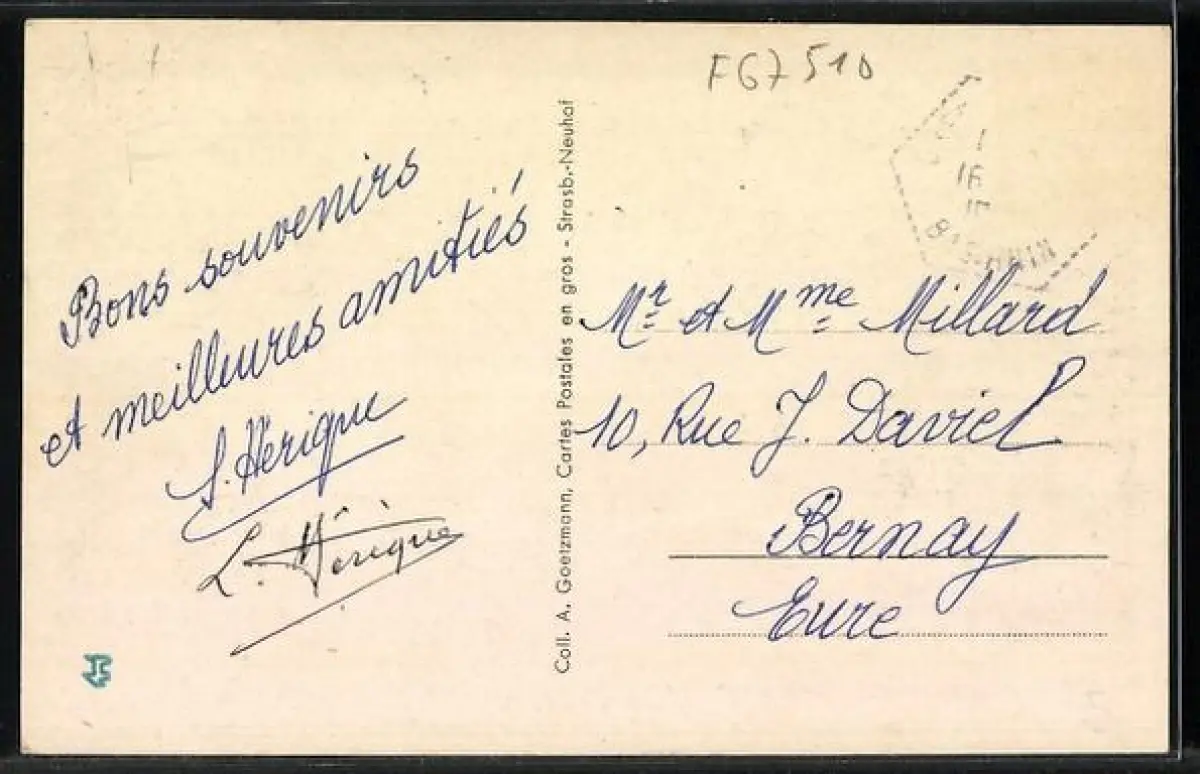 F67510
Bons souvenirs
et meilleures amitiés
S. Hérique
L. Hérique
Coll. A. Goetzmann, Cartes Postales en gros - Strasb.-Neuhof
Mr et Mme Millard
10, Rue J. Daviel
Bernay
Eure